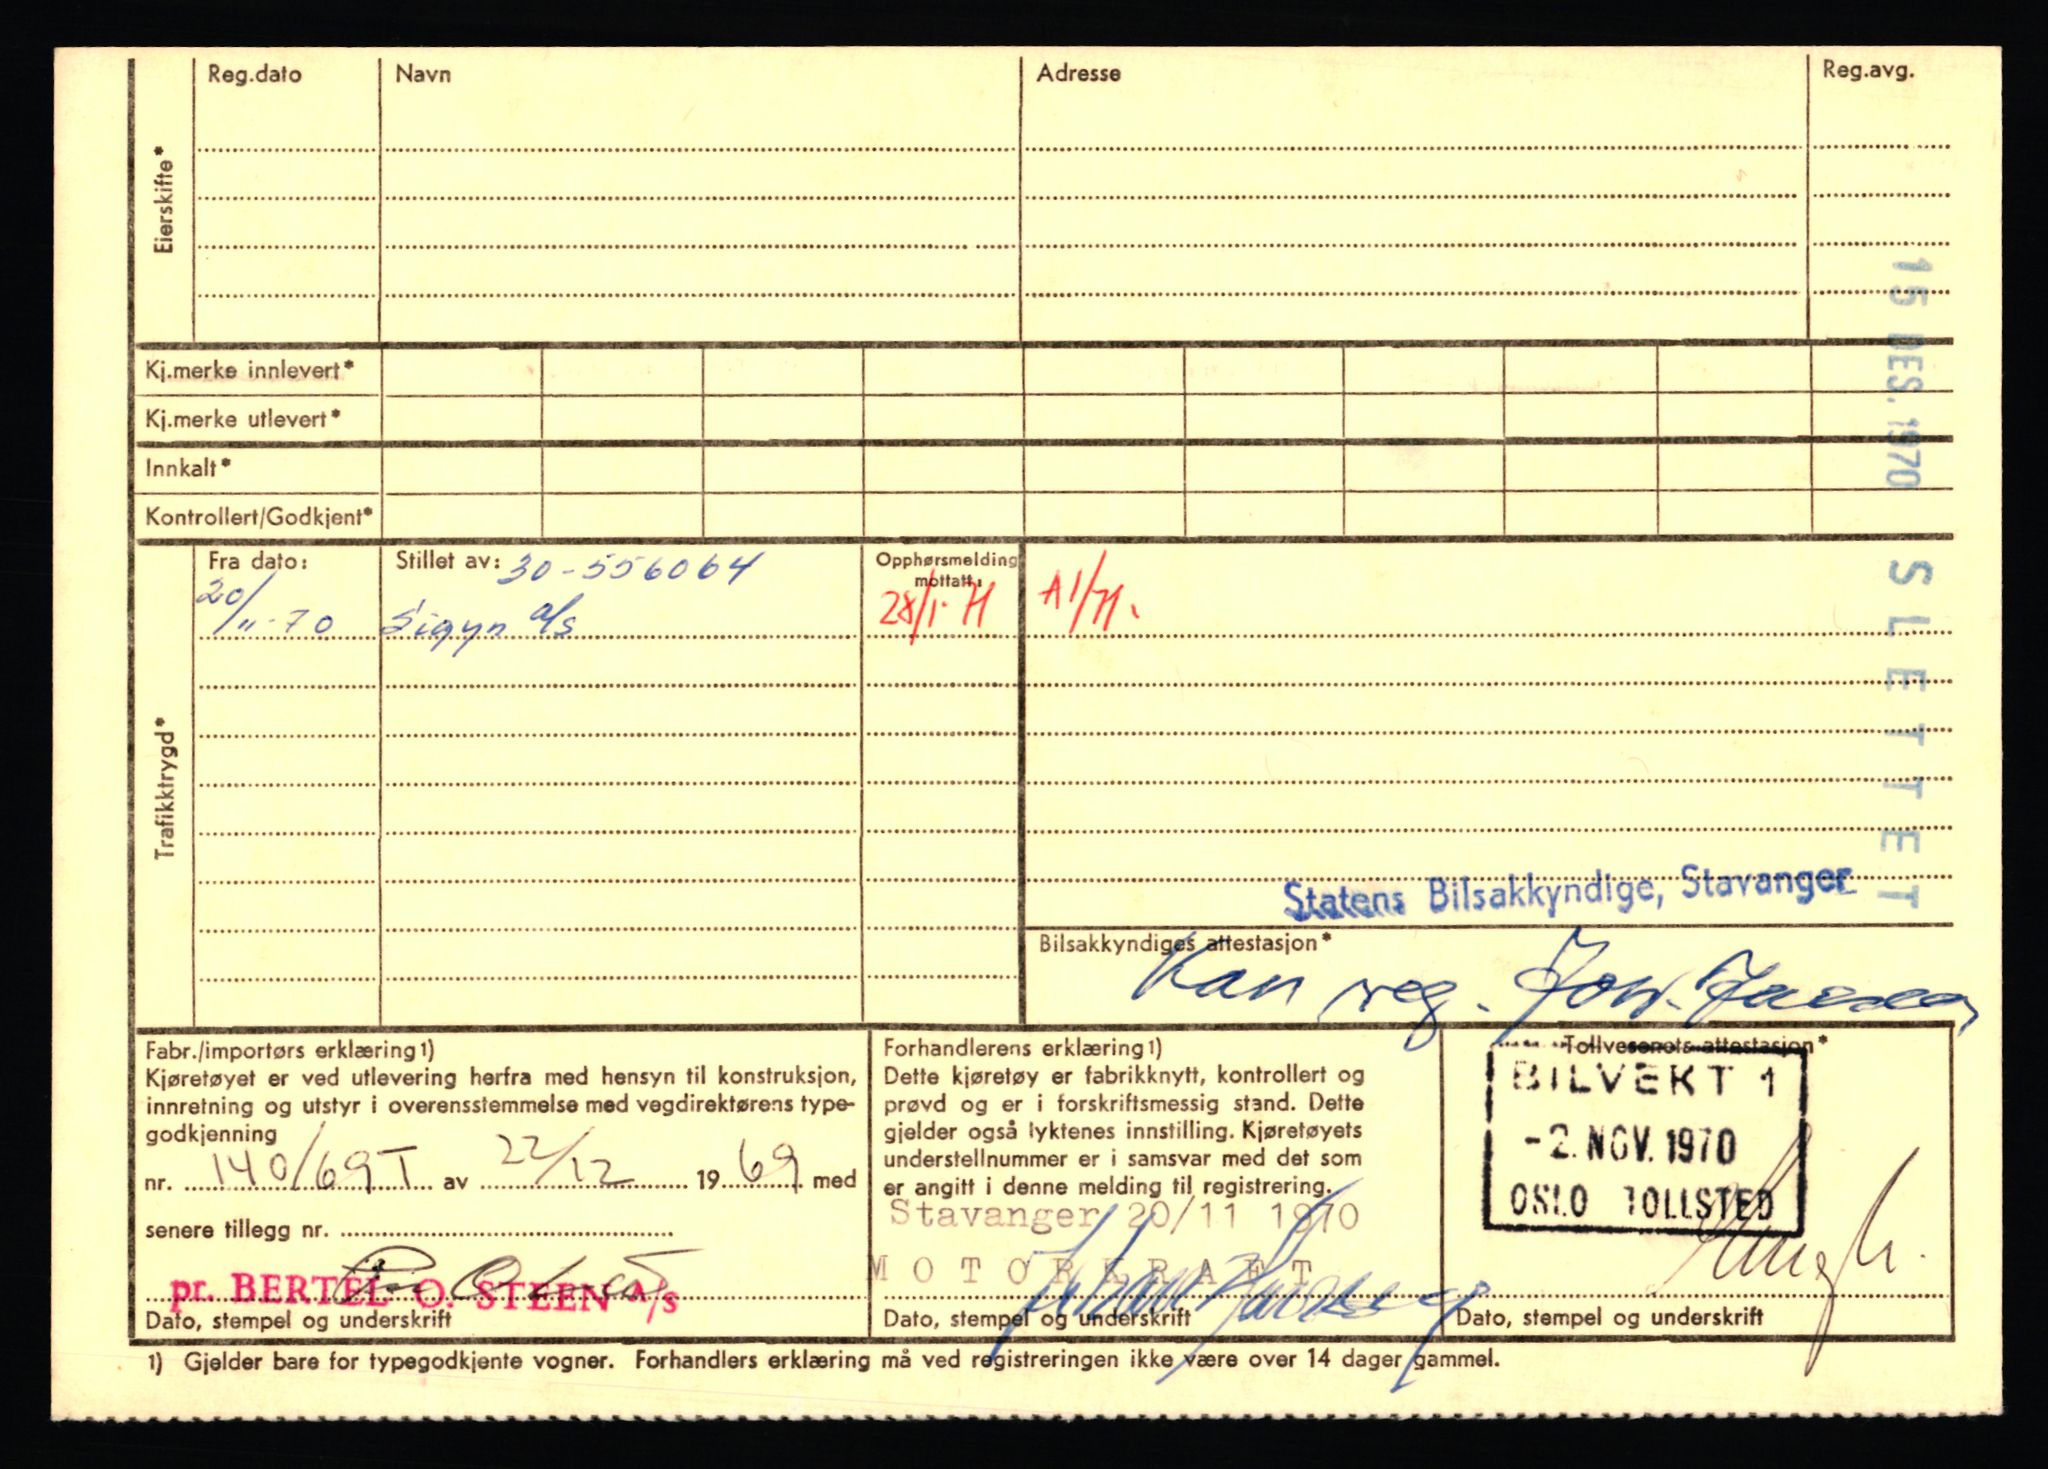 Reg.dato Navn Adresse Reg.avg.
Eierskifte*
15 DES. 1970
SLETTET
Kj.merke innlevert*
Kj.merke utlevert*
Innkalt*
Kontrollert/Godkjent*
Trafikktrygd*
Fra dato: Stillet av: 30-556064 Opphørsmelding mottatt:
20/11-70 Sigyn a/s 28/1-71 A1/71.
Statens Bilsakkyndige, Stavanger
Bilsakkyndiges attestasjon*
Kan reg.
Fabr./importørs erklæring1)
Kjøretøyet er ved utlevering herfra med hensyn til konstruksjon,
innretning og utstyr i overensstemmelse med vegdirektørens type-
godkjenning
nr. 140/69T av 22/12 1969 med
senere tillegg nr.
pr. BERTEL O. STEEN A/S
Dato, stempel og underskrift
Forhandlerens erklæring1)
Dette kjøretøy er fabrikknytt, kontrollert og
prøvd og er i forskriftsmessig stand. Dette
gjelder også lyktenes innstilling. Kjøretøyets
understellnummer er i samsvar med det som
er angitt i denne melding til registrering.
Stavanger 20/11 1970
MOTORKRAFT
Dato, stempel og underskrift
Tollvesenets attestasjon*
BILVEKT 1
-2. NOV. 1970
OSLO TOLLSTED
Dato, stempel og underskrift
1) Gjelder bare for typegodkjente vogner. Forhandlers erklæring må ved registreringen ikke være over 14 dager gammel.